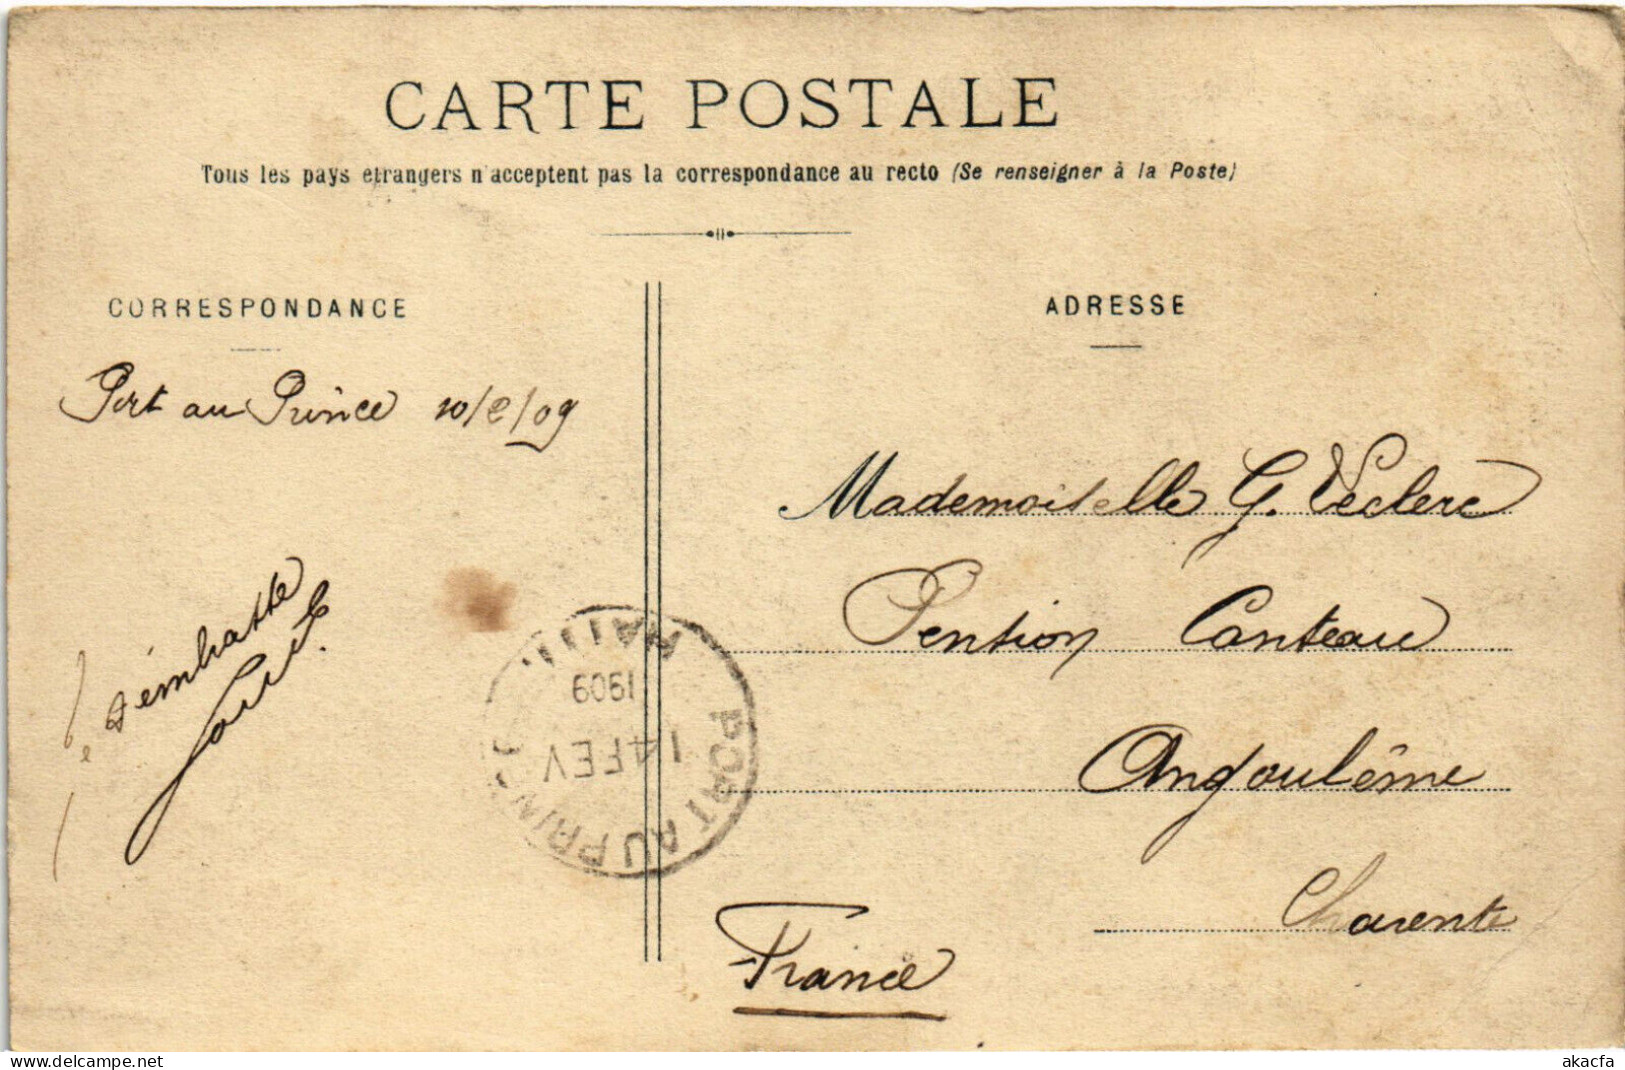 CARTE POSTALE
Tous les pays etrangers n'acceptent pas la correspondance au recto (Se renseigner à la Poste)
CORRESPONDANCE
ADRESSE
Port au Prince 10/2/09
Mademoiselle G. Leclerc
Pention Canteau
Angoulême
Charente
France
HAITI
1909
14 FEV
PORT AU PRINCE
delcampe.net
akacfa